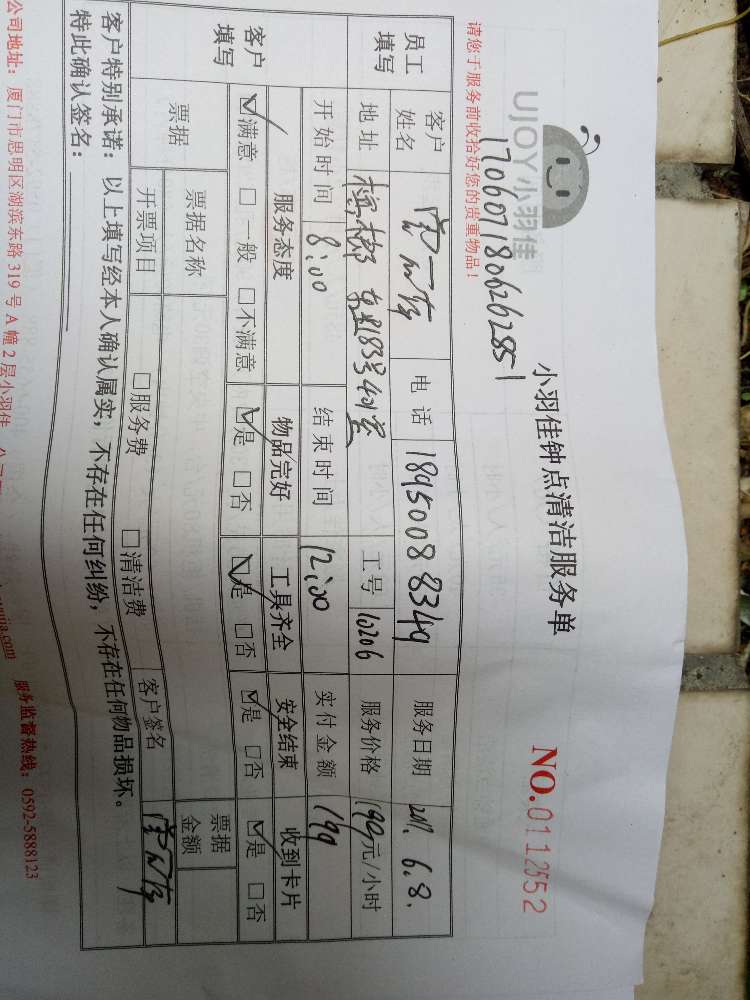 UJOY小羽佳
小羽佳钟点清洁服务单
NO.0112552
请您于服务前收拾好您的贵重物品!
员工填写
客户姓名
电话 18950088349
服务日期 2017.6.8.
地址
183号
工号 10206
服务价格 199元/小时
开始时间 8:00
结束时间 12:00
实付金额 199
客户填写
服务态度 物品完好 工具齐全 安全结束 收到卡片
☑满意 □一般 □不满意 ☑是 □否 ☑是 □否 ☑是 □否 ☑是 □否
票据
票据名称
票据金额
开票项目 □服务费 □清洁费 客户签名
客户特别承诺:以上填写经本人确认属实,不存在任何纠纷,不存在任何物品损坏。
特此确认签名:
公司地址:厦门市思明区湖滨东路319号A幢2层小羽佳
服务监督热线:0592-5888123